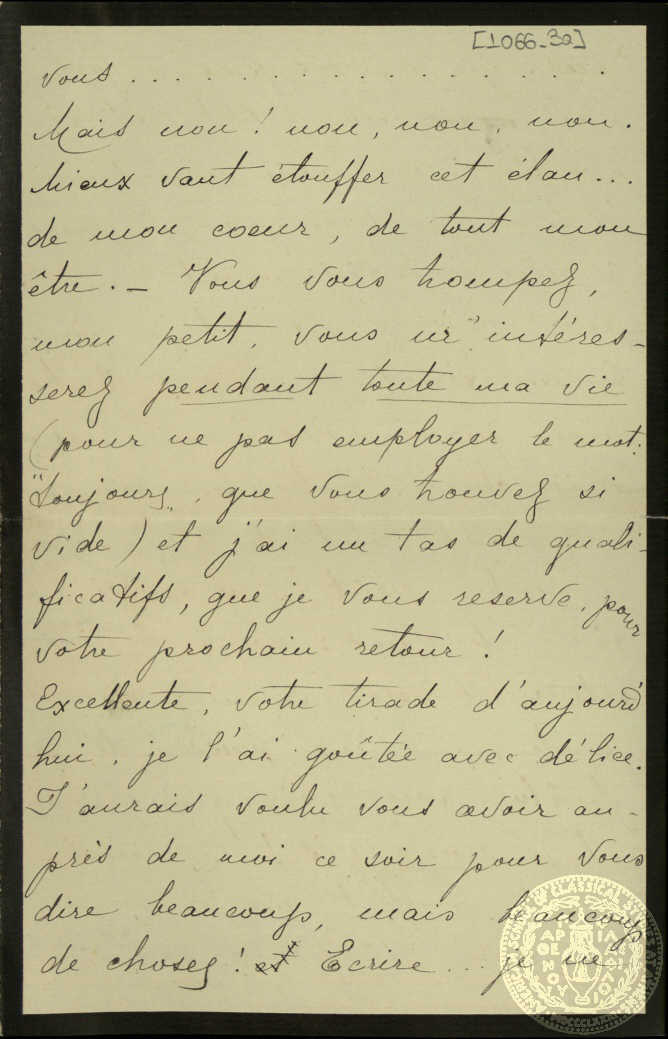 [1066-3a]
vous . . . . . . . . . . . . . . . . .
Mais non! non, non, non.
Mieux vaut étouffer cet élan...
de mon coeur, de tout mon
être. — Vous vous trompez,
mon petit, vous m'intéres-
serez pendant toute ma vie
(pour ne pas employer le mot:
"toujours", que vous trouvez si
vide) et j'ai un tas de quali-
ficatifs, que je vous reserve, pour
votre prochain retour!
Excellente, votre tirade d'aujourd'
hui, je l'ai goûtée avec délice.
J'aurais voulu vous avoir au-
près de moi ce soir pour vous
dire beaucoup, mais beaucoup
de choses! et Ecrire... je ne